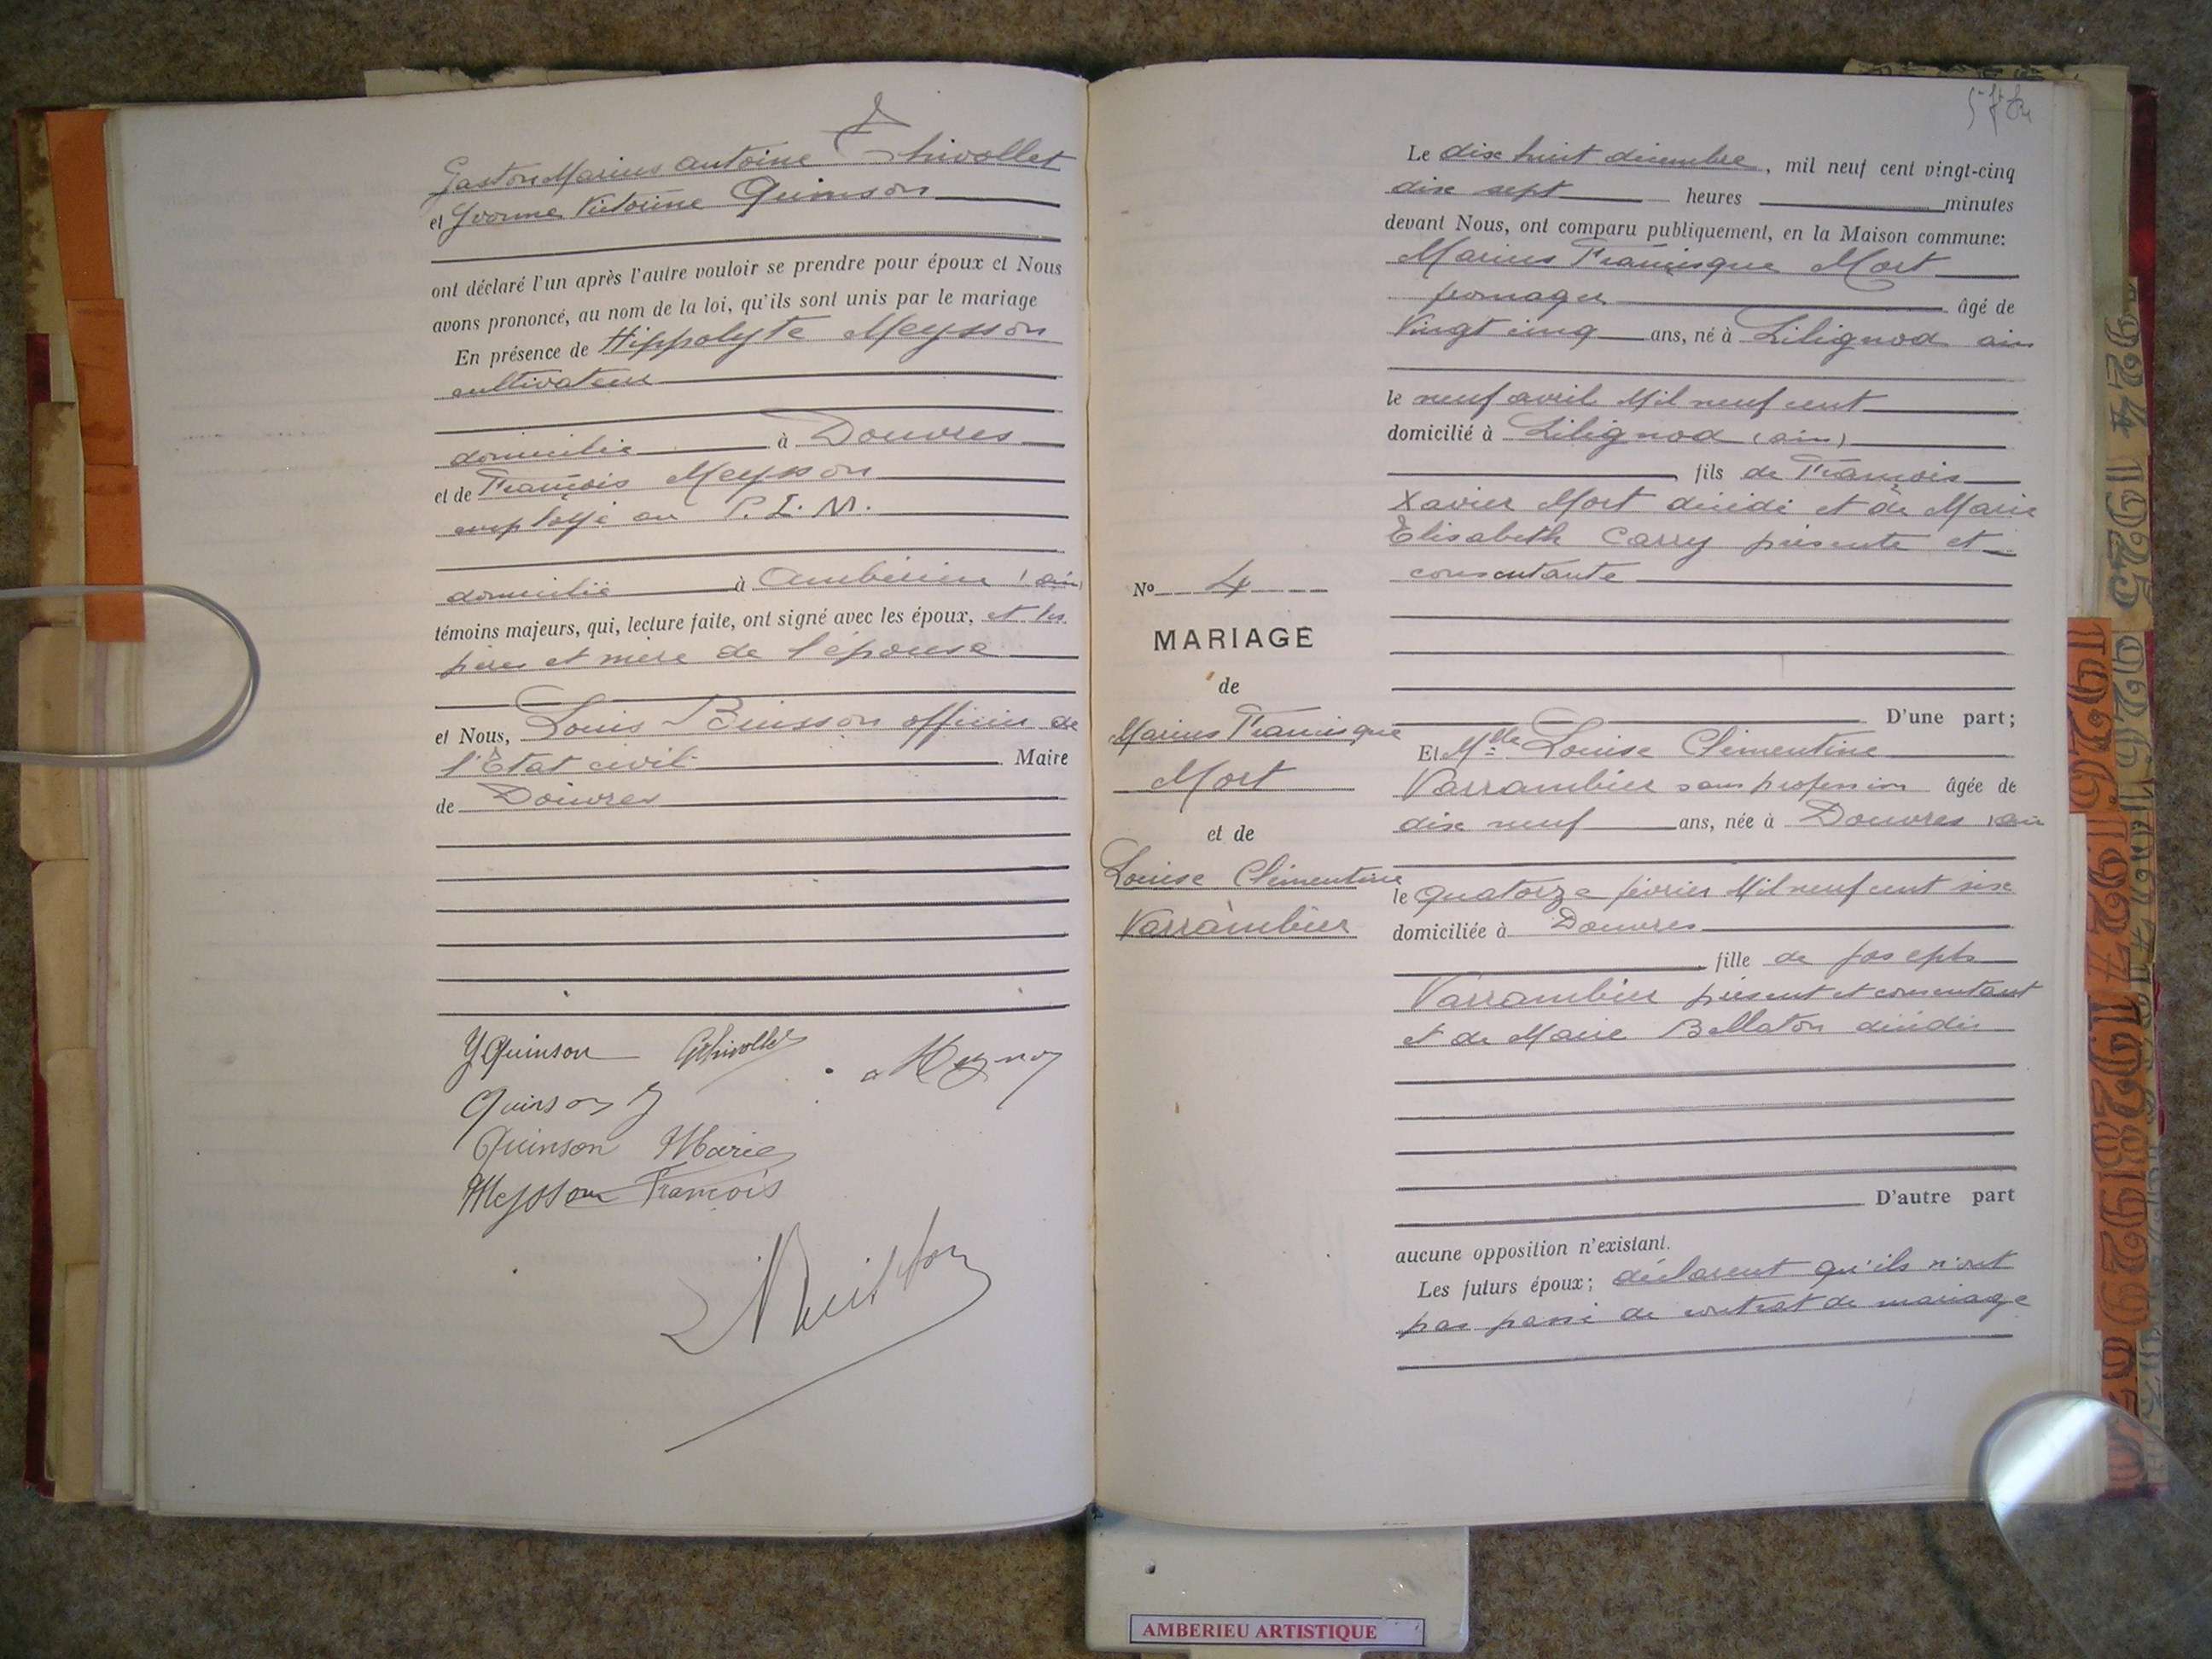 Gaston Marius Antoine Thivollet
et Yvonne Victorine Quinson
ont déclaré l'un après l'autre vouloir se prendre pour époux et Nous
avons prononcé, au nom de la loi, qu'ils sont unis par le mariage
En présence de Hippolyte Meysson
cultivateur
domicilié à Douvres
et de François Meysson
employé au P.L.M.
domicilié à Ambérieu (ain)
témoins majeurs, qui, lecture faite, ont signé avec les époux, et les
père et mère de l'épouse
et Nous, Louis Buisson officier de
l'État civil Maire
de Douvres
YQuinson GThivollet
Quinson
Quinson Marie
Meysson François
LBuisson
Le dix huit décembre, mil neuf cent vingt-cinq
dix sept heures minutes
devant Nous, ont comparu publiquement, en la Maison commune:
Marius Francisque Mort
fromager âgé de
Vingt cinq ans, né à Lilignod ain
le neuf avril Mil neuf cent
domicilié à Lilignod (ain)
fils de François
Xavier Mort décédé et de Marie
Elisabeth Carry présente et
consentante
D'une part;
Et Mlle Louise Clémentine
Varrambier sans profession âgée de
dix neuf ans, née à Douvres (ain
le quatorze février Mil neuf cent six
domiciliée à Douvres
fille de Joseph
Varrambier présent et consentant
et de Marie Bellaton décédée
D'autre part
aucune opposition n'existant.
Les futurs époux; déclarent qu'ils n'ont
pas passé de contrat de mariage
No 4
MARIAGE
de
Marius Francisque
Mort
et de
Louise Clémentine
Varrambier
1924 1925 1926
1926 1927 1928 1929
AMBERIEU ARTISTIQUE